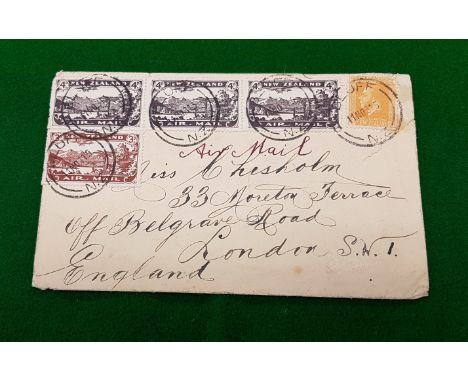 NEW ZEALAND NEW ZEALAND NEW ZEALAND
4d 4d 4d 4d
AIR MAIL AIR MAIL
N.Z. N.Z.
AIR MAIL
Air Mail
Miss Chesholm
33 Moreton Terrace
Off Belgrave Road
London S.W.1.
England